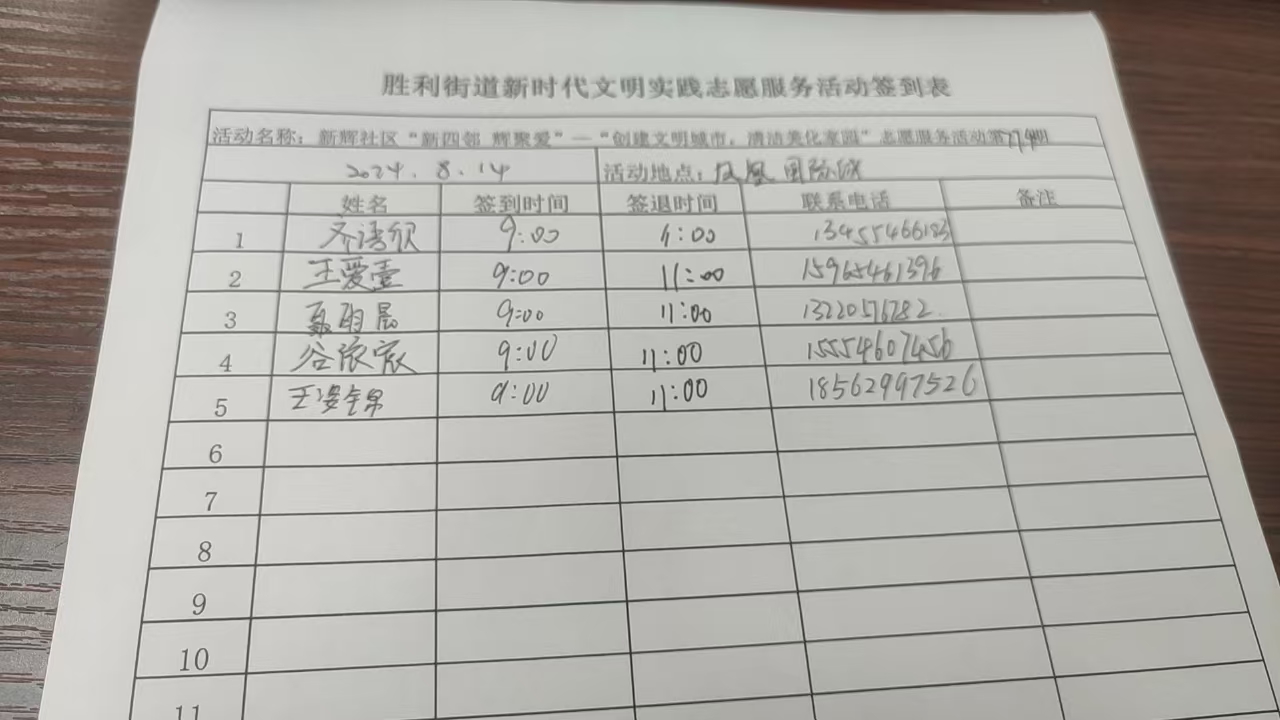 胜利街道新时代文明实践志愿服务活动签到表
活动名称：新辉社区“新四邻 辉聚爱”—“创建文明城市，清洁美化家园”志愿服务活动第 期
2024.8.14 活动地点：凤凰国际
姓名 签到时间 签退时间 联系电话 备注
1 9:00 11:00
2 王爱 9:00 11:00 15965461396
3 雨晨 9:00 11:00 13220576782
4 谷 9:00 11:00 15554607456
5 王姿锦 9:00 11:00 18562997526
6
7
8
9
10
11